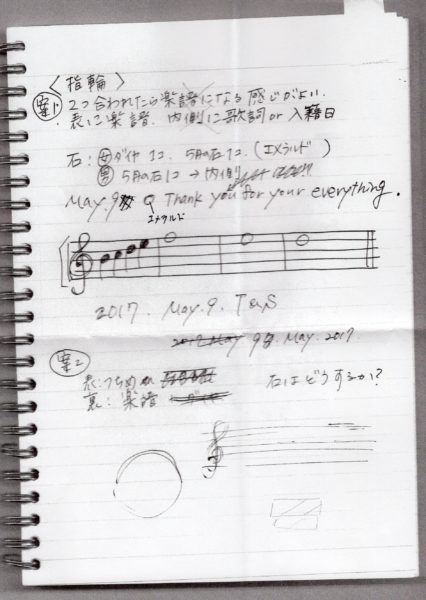 〈指輪〉
案1 2つ合わせたら楽譜になる感じがよい。
表に楽譜、内側に歌詞 or 入籍日
石：女 ダイヤ 1コ、5月の石1コ、(エメラルド)
男 5月の石1コ → 内側
May.9 Thank you for your everything.
エメラルド
2017. May. 9. T&S
2017 May 9 May. 2017
案2
表：つちめ 石はどうするか？
裏：楽譜